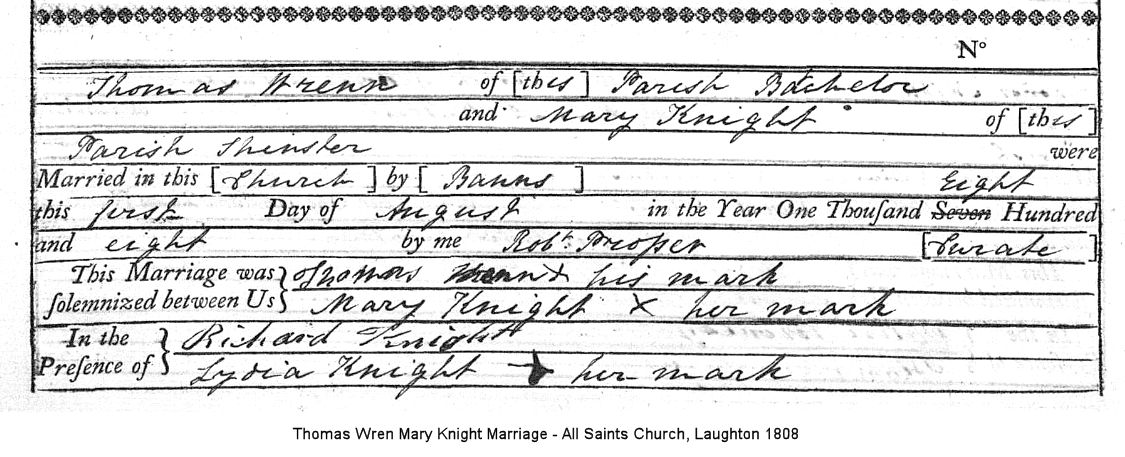 N°
Thomas Wrenn of [this] Parish Batchelor
and Mary Knight of [this]
Parish Spinster were
Married in this [Church] by [Banns] Eight
this first Day of August in the Year One Thouſand Seven Hundred
and eight by me Robt. Prosser [Curate]
This Marriage was } Thomas Wrenn X his mark
ſolemnized between Us } Mary Knight X her mark
In the } Richard Knight
Preſence of } Lydia Knight + her mark
Thomas Wren Mary Knight Marriage - All Saints Church, Laughton 1808